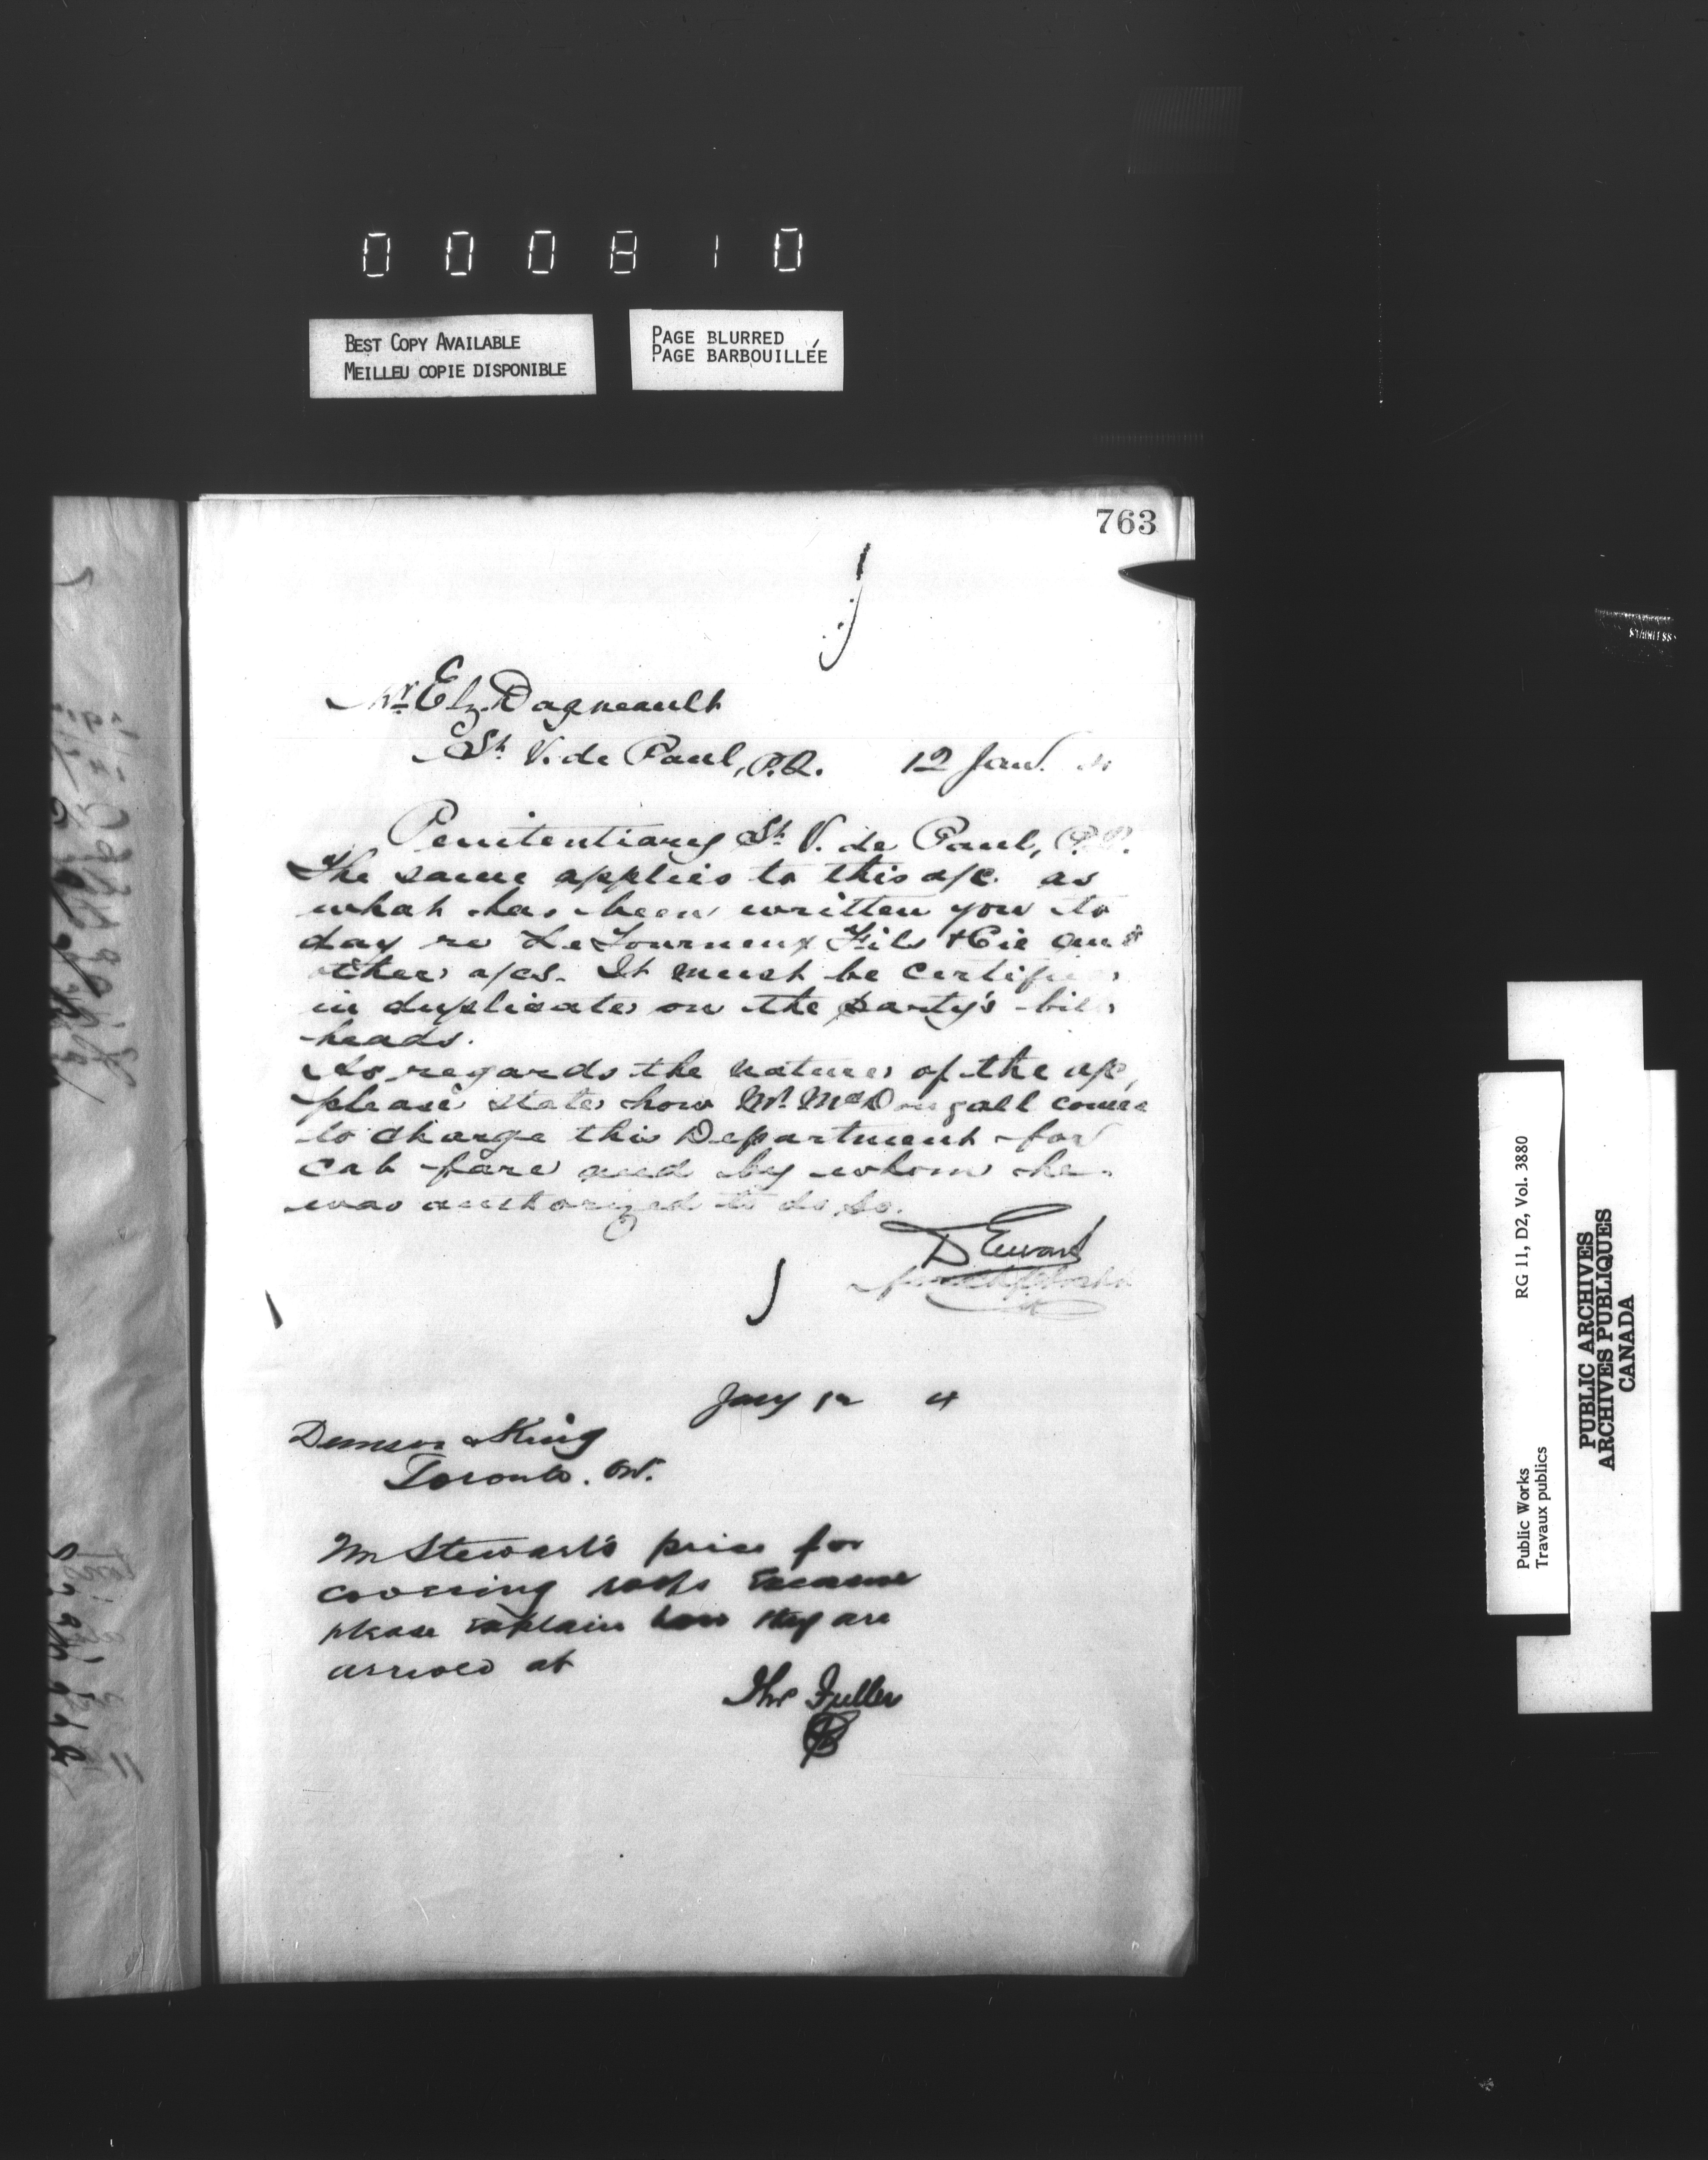 000810
BEST COPY AVAILABLE
MEILLEU COPIE DISPONIBLE
PAGE BLURRED
PAGE BARBOUILLÉE
763
Mr. Elz. Dagneault
St. V. de Paul, P.Q. 12 Jan.
Penitentiary St. V. de Paul, P.Q.
The same applies to this a/c. as
what has been written you to
day re LeTourneux Fils & Cie and
other a/cs. It must be certified
in duplicate on the party's bill
heads.
As regards the nature of the a/c,
please state how Mr. McDougall comes
to charge this Department for
cab fare and by whom he
was authorized to do so.
D Ewart
Jany 12 4
Denison & King
Toronto. Ont.
Mr Stewart's price for
covering
please explain how they are
arrived at
Thos Fuller
Public Works
Travaux publics
RG 11, D2, Vol. 3880
PUBLIC ARCHIVES
ARCHIVES PUBLIQUES
CANADA